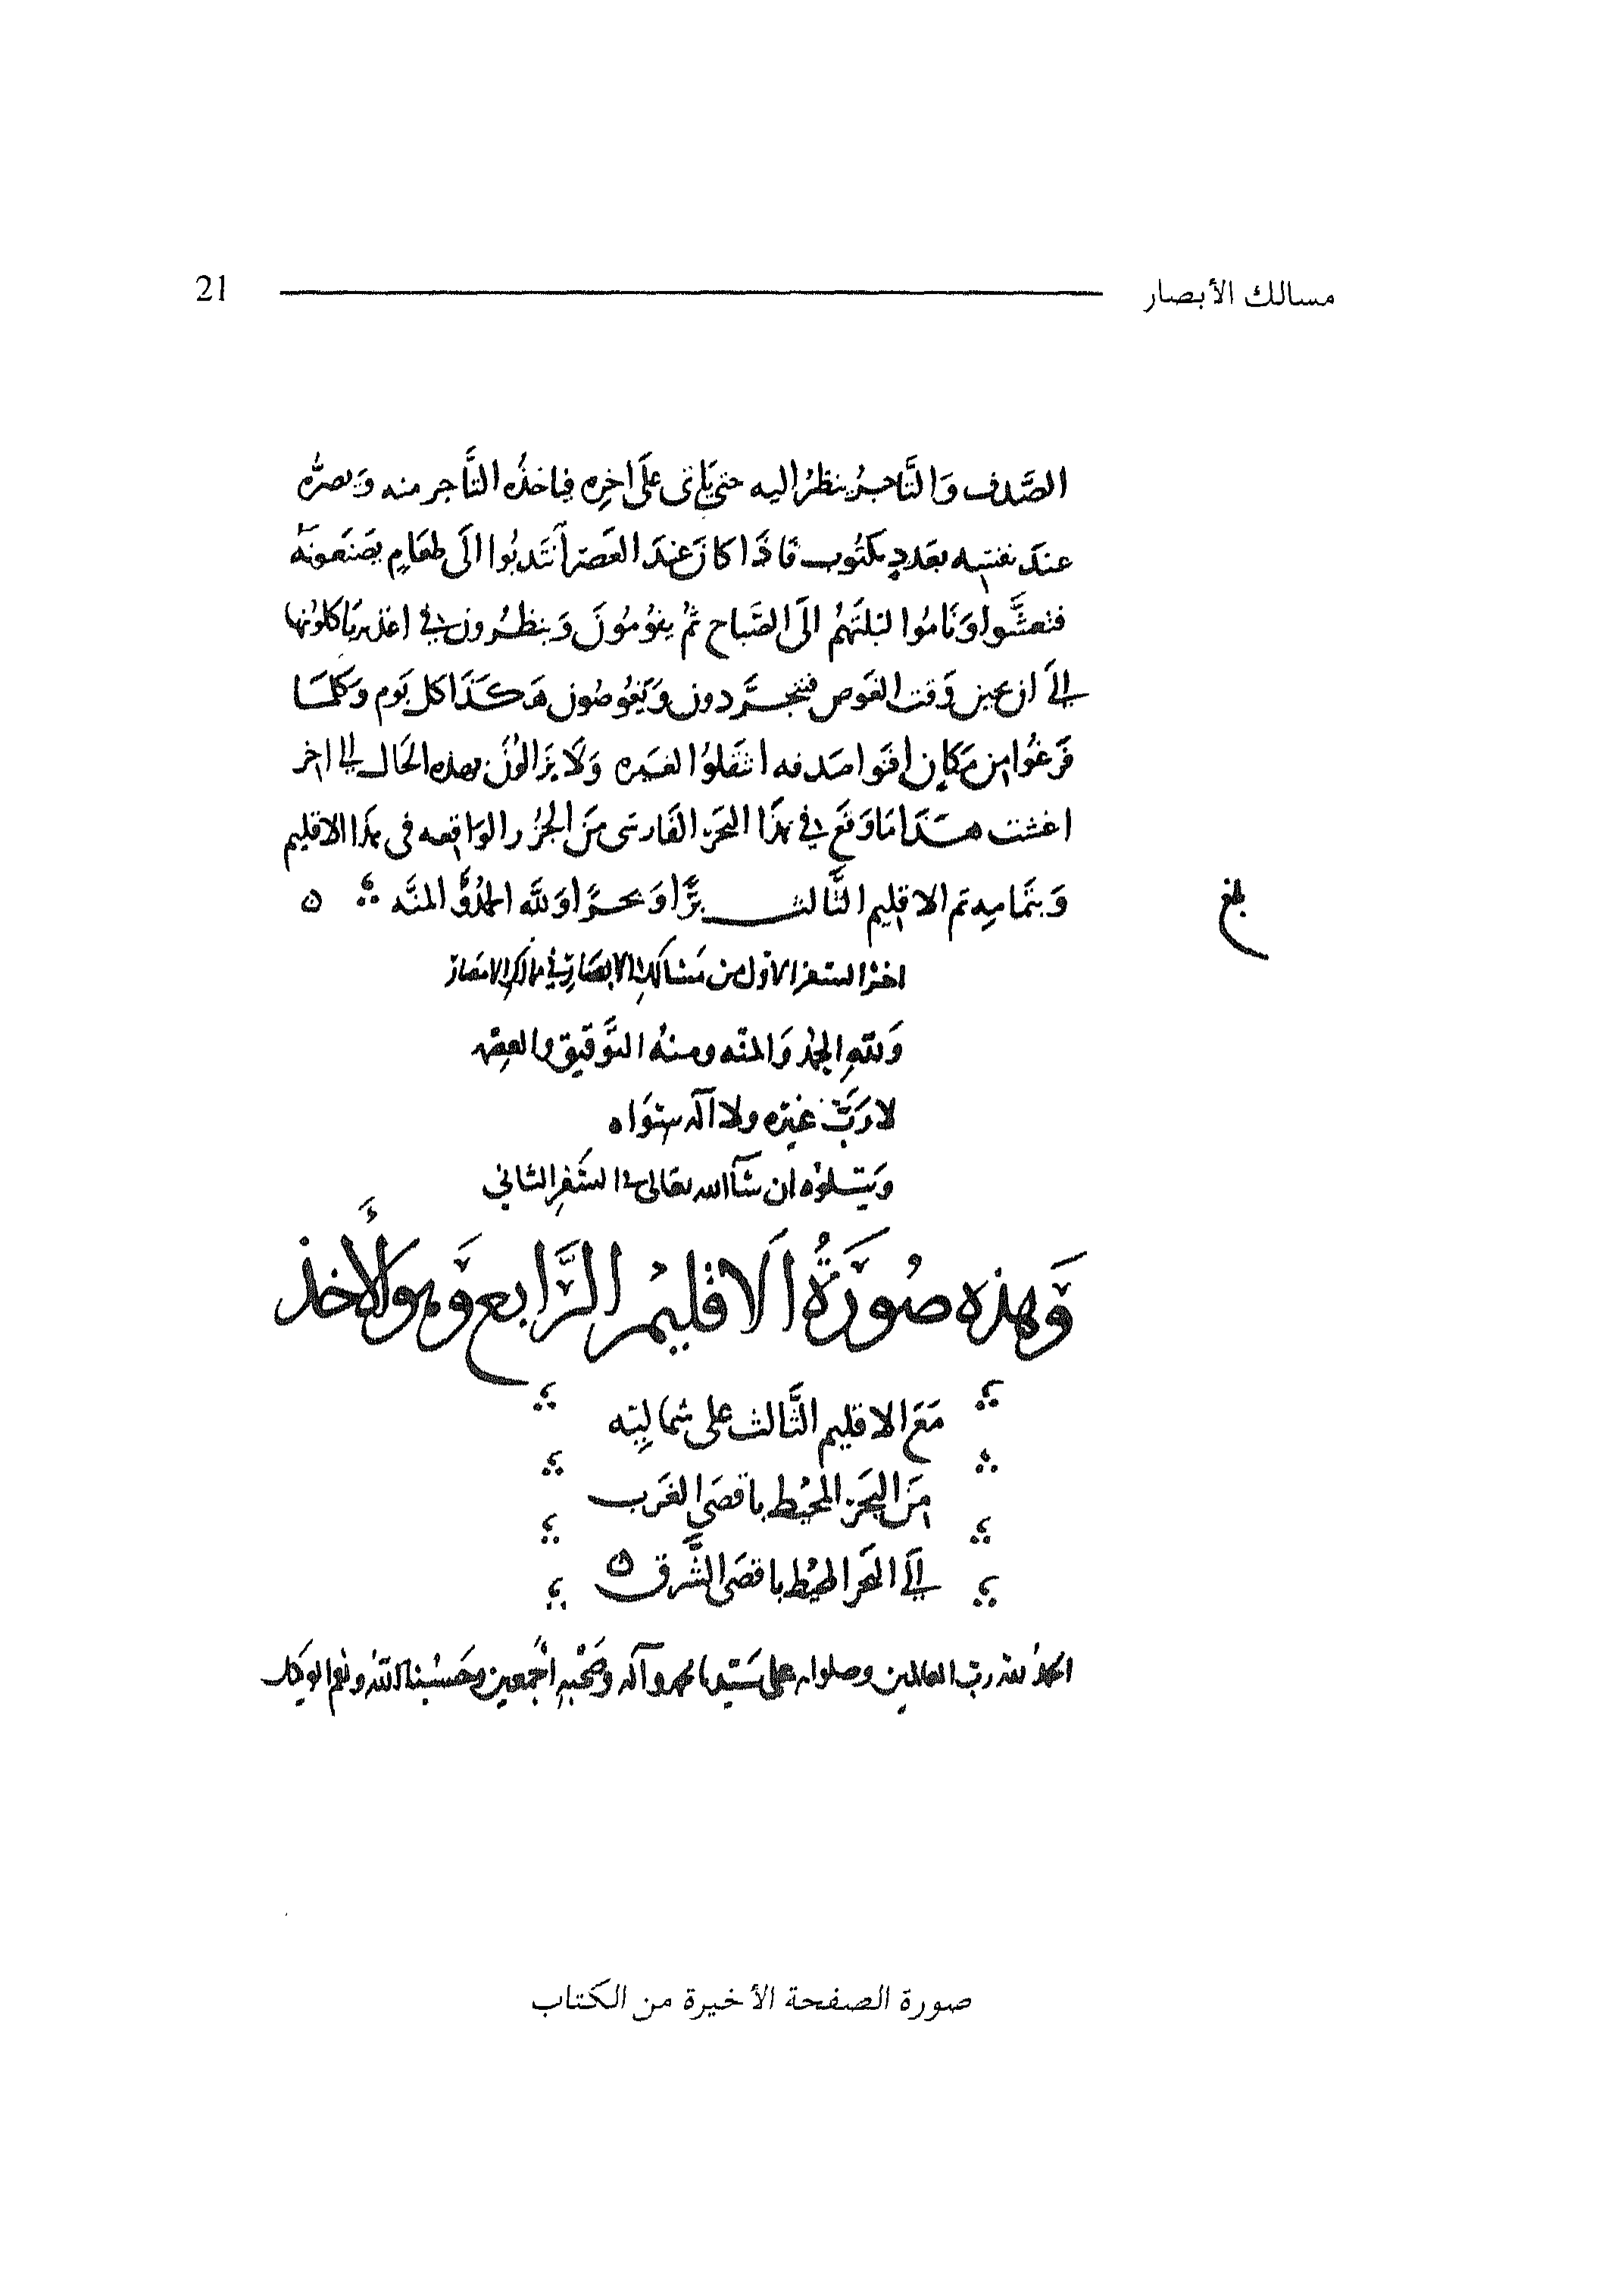 مسالك الأبصار 21
الصَّدف وَالتَّاجرُ ينظرُ اليه حتى يَاتى عَلَى اخِرِه فياخذُه التَّاجر منه وَيصرُّه
عندَ نفسِه بعَددٍ مكتُوب فَاذَا كانَ عَندَ العَصرِ انتَدبُوا الَى طعَامٍ يصَنَعونَه
فتعشَّوا وَنَامُوا ليلتَهُم الَى الصَّباح ثُم يقومُونَ وَينظُرون فى اغذيَة ياكلونها
الَى ان يحين وَقت الغَوص فيتجرَّدون وَيَغُوصُون هَكذَا كل يَوم وَكلمَا
فَرغُوا من مَكانٍ افنَوا صَدفه انتقَلوُا لغيَره وَلَا يزَالُونَ بهذه الحَال الى اخر
اغشت هَذَا مَا وَقَع فى هذَا البَحَر الفَارسَى مِنَ الجُزُر الوَاقعه فى هذَا الاقليم
وَبتَمامِه تم الاقليم الثَّالث برًّا وَبحرًا وَللَّه الحَمدُ وَالمنَّه ه
بلغ
اخرُ السفر الاوّل من مَسَالكِ الابصَارِ فى ممالكِ الامصَار
وَللهِ الحمدُ وَالمنّه ومنهُ التَّوفيق والعِصْمه
لا رَبَّ غيرَه ولا آله سِوَاه
وَيتلوُه ان شآ الله تعَالى فى السّفرِ الثانى
وَهذه صُورَةُ الَاقليم الرَّابع وَهوَ الآخذ
مَعَ الاقليم الثَّالث على شماليِه
مِنَ البَحَر المحُيط باقصَى الغَرب
الَى البحَر المحُيط باقصَى الشَّرق ه
الحمدُ لله ربّ العالمين وصلواته على سَيّدنا محمد وآله وصَحْبهِ اجْمعين وحَسْبنا اللهُ ونعم الوَكيل
صورة الصفحة الأخيرة من الكتاب